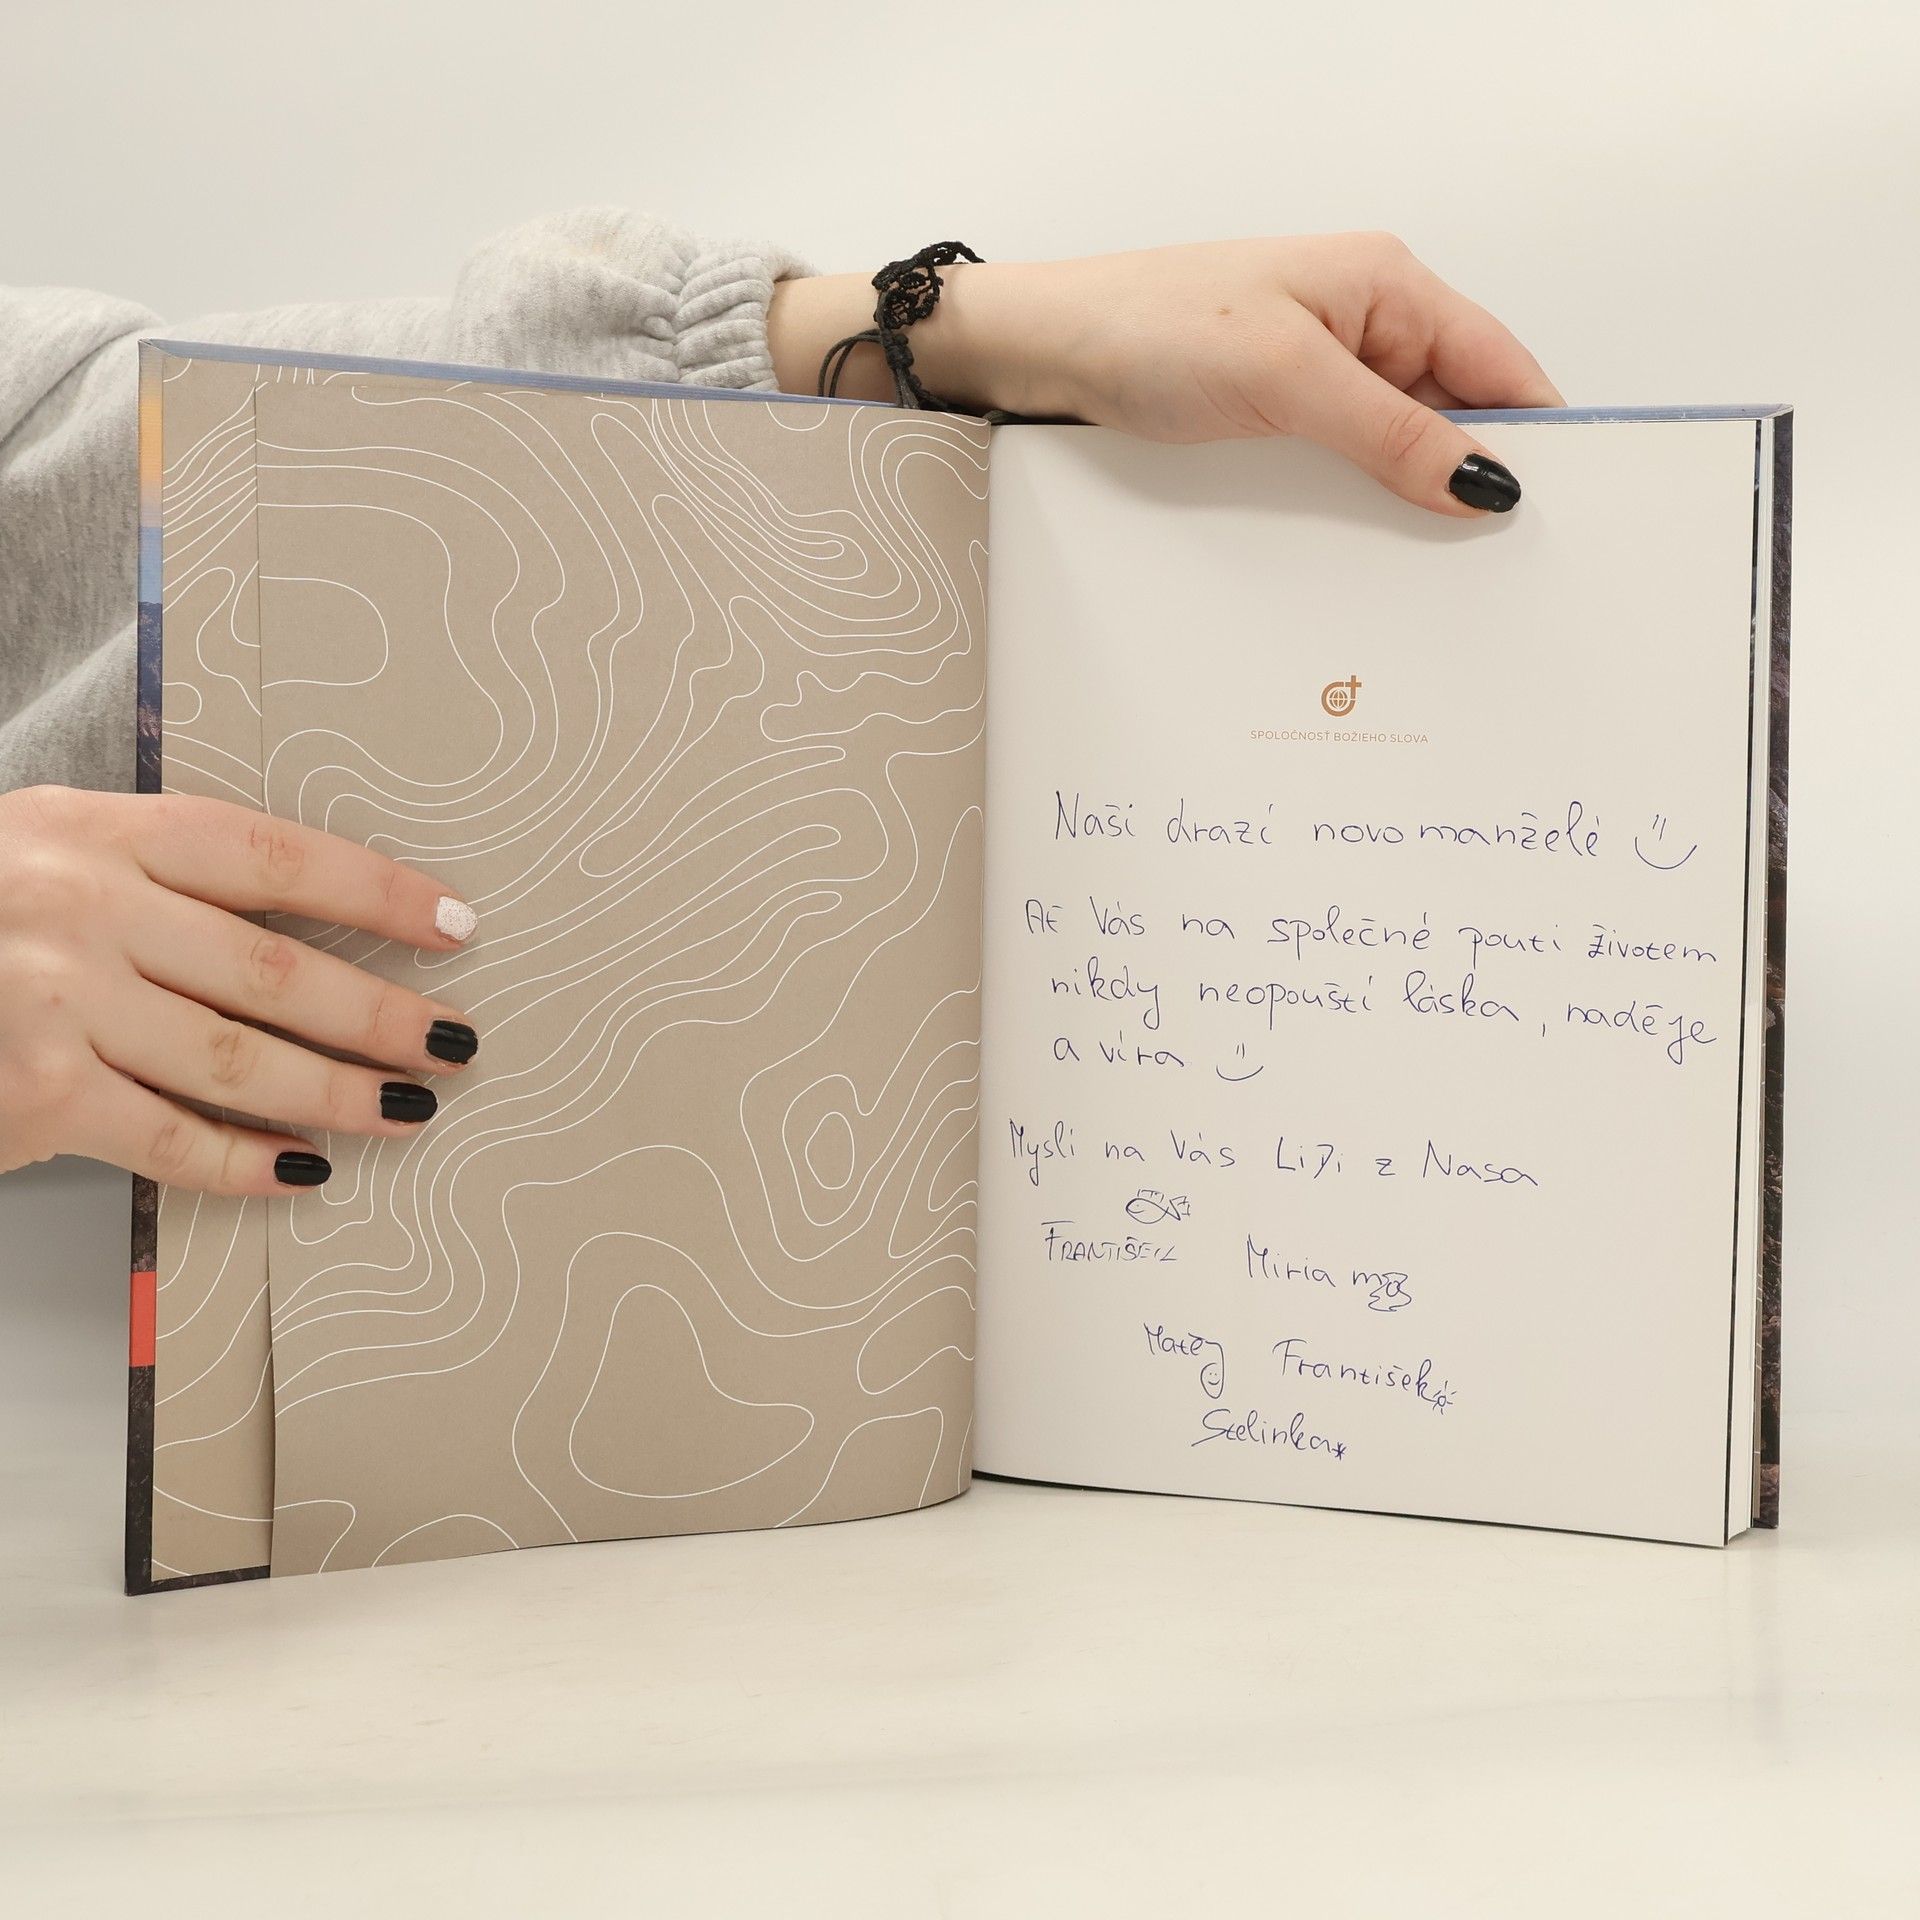 SPOLOČNOSŤ BOŽIEHO SLOVA
Naši drazí novomanželé
Ať Vás na společné pouti životem
nikdy neopouští láska, naděje
a víra
Myslí na Vás LiDi z Nasa
FRANTIŠEK Miriam
Matěj František
Stelinka*